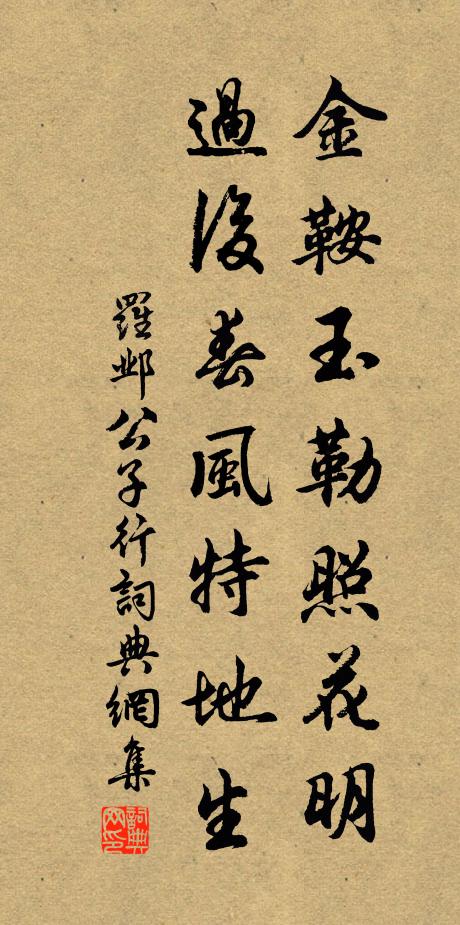 金鞍玉勒照花明
過後春風特地生
羅邺公子行詞典網集
詞典網印